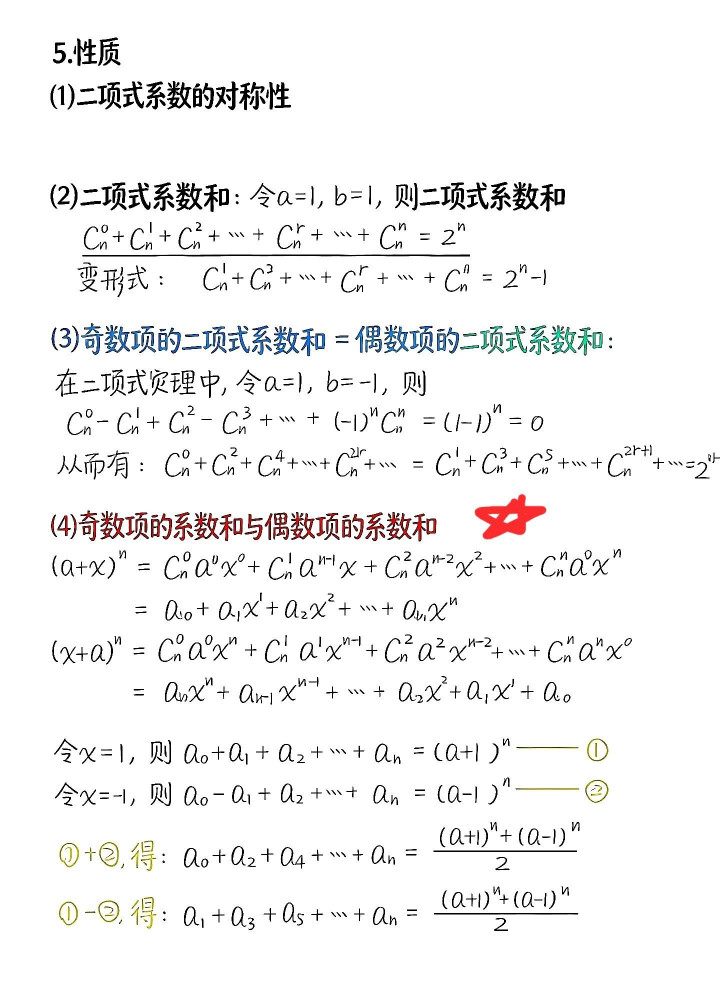 5.性质
(1)二项式系数的对称性
(2)二项式系数和: 令a=1, b=1, 则二项式系数和
Cₙ⁰+Cₙ¹+Cₙ²+…+Cₙʳ+…+Cₙⁿ = 2ⁿ
变形式: Cₙ¹+Cₙ²+…+Cₙʳ+…+Cₙⁿ = 2ⁿ-1
(3)奇数项的二项式系数和=偶数项的二项式系数和:
在二项式定理中, 令a=1, b=-1, 则
Cₙ⁰-Cₙ¹+Cₙ²-Cₙ³+…+(-1)ⁿCₙⁿ = (1-1)ⁿ = 0
从而有: Cₙ⁰+Cₙ²+Cₙ⁴+…+Cₙ²ʳ+… = Cₙ¹+Cₙ³+Cₙ⁵+…+Cₙ²ʳ⁺¹+…=2ⁿ⁻
(4)奇数项的系数和与偶数项的系数和
(a+x)ⁿ = Cₙ⁰aⁿx⁰+Cₙ¹aⁿ⁻¹x+Cₙ²aⁿ⁻²x²+…+Cₙⁿa⁰xⁿ
= a₀+a₁x¹+a₂x²+…+aₙxⁿ
(x+a)ⁿ = Cₙ⁰a⁰xⁿ+Cₙ¹a¹xⁿ⁻¹+Cₙ²a²xⁿ⁻²+…+Cₙⁿaⁿx⁰
= aₙxⁿ+aₙ₋₁xⁿ⁻¹+…+a₂x²+a₁x¹+a₀
令x=1, 则 a₀+a₁+a₂+…+aₙ = (a+1)ⁿ——①
令x=-1, 则 a₀-a₁+a₂+…+aₙ = (a-1)ⁿ——②
①+②, 得: a₀+a₂+a₄+…+aₙ = (a+1)ⁿ+(a-1)ⁿ / 2
①-②, 得: a₁+a₃+a₅+…+aₙ = (a+1)ⁿ+(a-1)ⁿ / 2